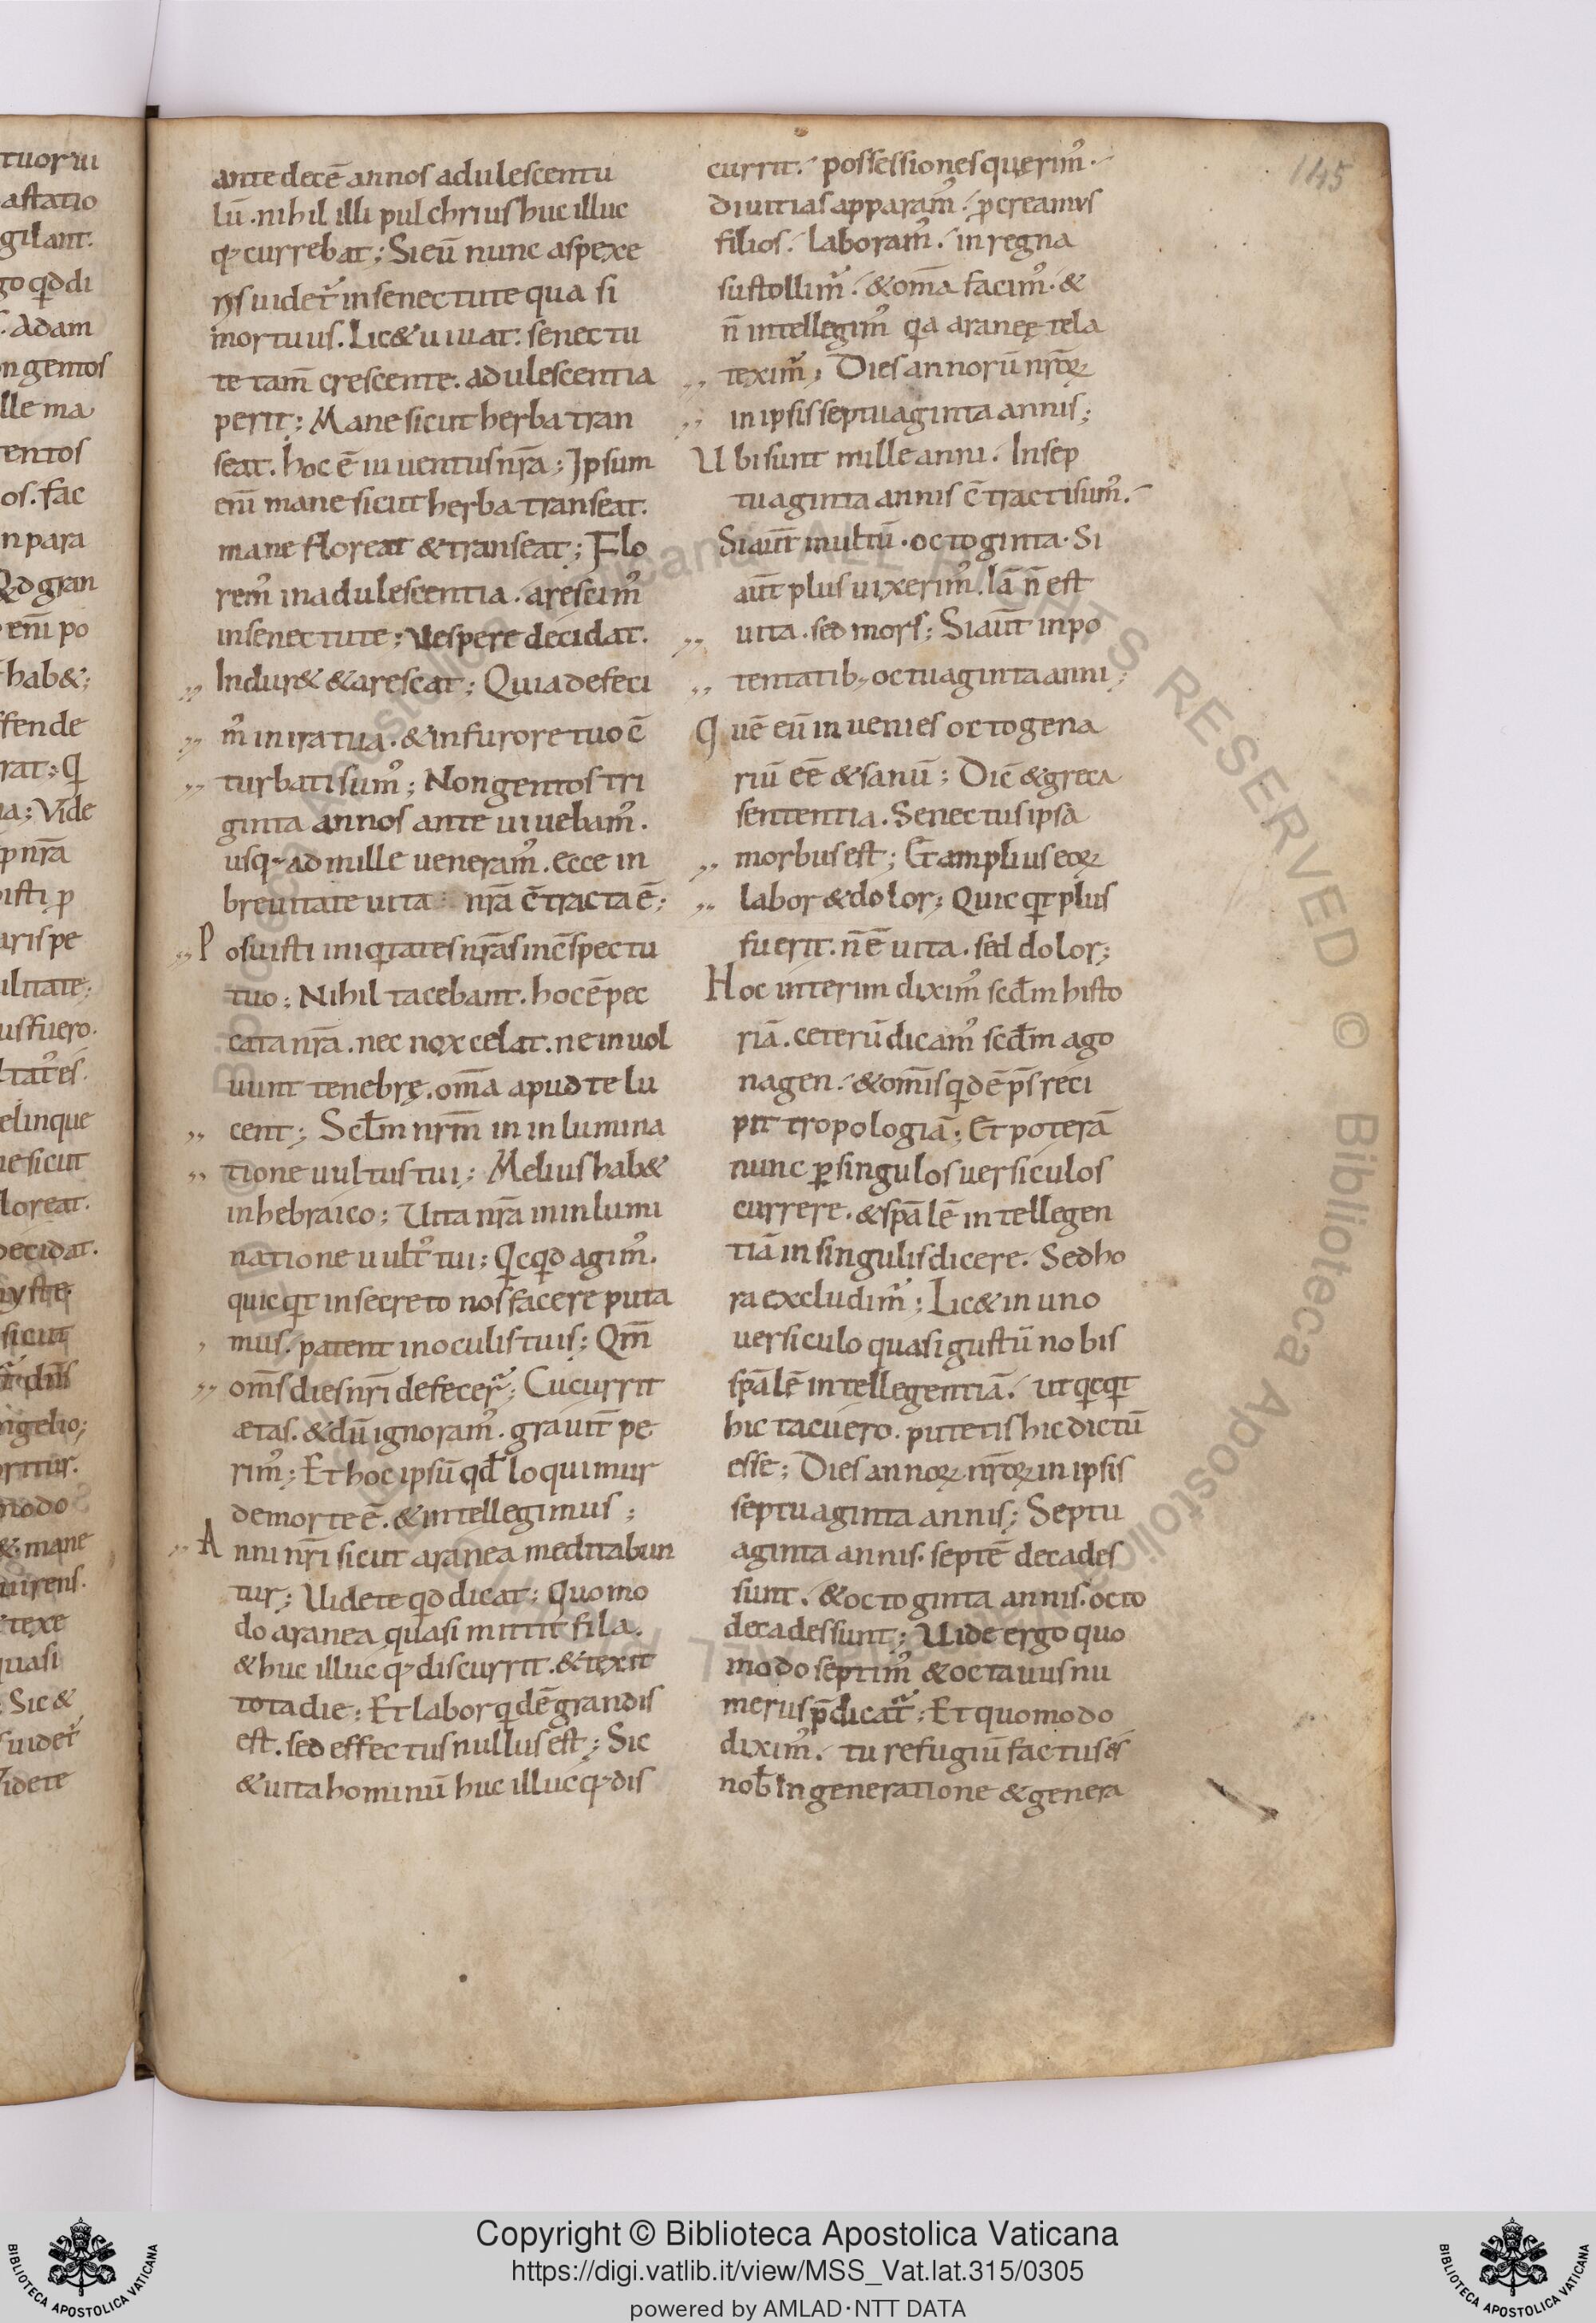 145
tuor ui
astatio
gilant.
go qd di
. Adam
ngentos
lle ma
entos
os. fac
n para
Qd gran
eni po
hab&;
ffende
rat; q
na; Vide
p nrā
isti p
aris pe
ilitate;
us fuero.
elinque
ne sicut
loreat.
decidat.
sicut
ngelio;
oritur.
modo
& mane
uirens.
texe
quasi
Sic &
uidet
Videte
ante decē annos adulescentu
lū. nihil illi pulchrius huc illuc
q; currebat; Si eū nunc aspexe
ris uidet᷑ in senectute qua si
mortuus. Lic& uiuat: senectu
te tam̄ crescente. adulescentia
perit; Mane sicut herba tran
seat. hoc ē iuuentus nrā; Ipsum
eni mane sicut herba transeat.
mane floreat & transeat; Flo
rem᷒ in adulescentia. arescim᷒
in senectute; Vespere decidat.
„ Indur& & arescat; Quia defeci
„ m᷒ in ira tua. & in furore tuo c̄
„ turbati sum᷒; Nongentos tri
ginta annos ante uiuebam᷒.
usq; ad mille ueneram᷒. ecce in
breuitate uita nrā c̄tracta ē;
„ Posuisti iniqtates nrās in c̄spectu
tuo; Nihil tacebant. hoc ē pec
cata nrā. nec nox celat. ne inuol
uunt tenebrę. om̄a apud te lu
„ cent; Sctm nrm̄ in inlumina
„ tione uultus tui; Melius hab&
in hebraico; Uita nrā in inlumi
natione uult᷒ tui; Qcqd agim᷒.
quicqt in secreto nos facere puta
, mus. patent in oculis tuis; Qm̄
„ om̄s dies nrī defecer᷑; Cucurrit
ætas. & dū ignoram᷒. grauit̄ pe
rim᷒; Et hoc ipsū qđ loquimur
de morte ē. & intellegimus;
„ Anni nrī sicut aranea meditabun
tur; Uidete qd dicat; Quomo
do aranea quasi mittit fila.
& huc illuc q; discurrit. & texit
tota die; Et labor qdē grandis
est. sed effectus nullus est; Sic
& uita hominū huc illuc q; dis
currit. possessiones querim᷒.
diuitias apparam᷒. pcreamus
filios. laboram᷒. in regna
sustollim᷑. & om̄a facim᷒. &
n̄ intellegim᷒ qa araneę tela
„ texim᷑; Dies annorū nrōꝝ
„ in ipsis septuaginta annis;
Ubi sunt mille anni. In sep
tuaginta annis c̄tracti sum᷒.
Si aut̄ multū. octoginta. Si
aut̄ plus uixerim᷒. Iā n̄ est
„ uita. sed mors; Si aut̄ in po
„ tentatib; octuaginta anni;
Quē eū inuenies octogena
riū eē & sanū; Dic̄ & greca
sententia. Senectus ipsa
„ morbus est; Et amplius eoꝝ
„ labor & dolor; Quicqt plus
fuerit. n̄ ē uita. sed dolor;
Hoc interim dixim᷒ scđm histo
riā. ceterū dicam᷒ scđm ago
nagen. & om̄is qdē ps̄ reci
pit tropologiā; Et poterā
nunc ꝑ singulos uersiculos
currere. & spālē intellegen
tiā in singulis dicere. Sed ho
ra excludim᷑; Lic& in uno
uersiculo quasi gustū nobis
spālē intellegentiā. ut qcqt
hic tacuero. putetis hic dictū
esse; Dies annoꝝ nrōꝝ in ipsis
septuaginta annis; Septu
aginta annis. septē decades
sunt. & octoginta annis. octo
decades sunt; Uide ergo quo
modo septim᷒ & octauus nu
merus p̄dicat᷑; Et quomodo
dixim᷒. tu refugiū factus es
nob̄ In generatione & genera
Biblioteca Apostolica Vaticana ALL RIGHTS RESERVED © Biblioteca Apostolica Vaticana ALL RIGHTS RESERVED ©
Copyright © Biblioteca Apostolica Vaticana
https://digi.vatlib.it/view/MSS_Vat.lat.315/0305
powered by AMLAD·NTT DATA
BIBLIOTECA APOSTOLICA VATICANA
BIBLIOTECA APOSTOLICA VATICANA